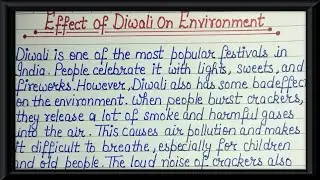 Effect of Diwali On Environment
Diwali is one of the most popular festivals in
India. People celebrate it with lights, sweets, and
fireworks. However, Diwali also has some bad effect
on the environment. When people burst crackers,
they release a lot of smoke and harmful gases
into the air. This causes air pollution and makes
it difficult to breathe, especially for children
and old people. The loud noise of crackers also